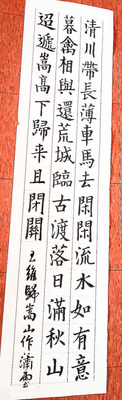 清川帶長薄車馬去閑閑流水如有意
暮禽相與還荒城臨古渡落日滿秋山
迢遞嵩高下歸来且閉關 王維歸嵩山作